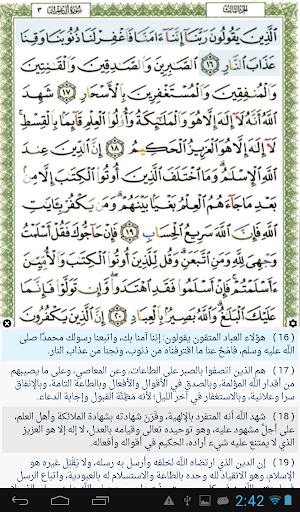 الجزء الثالث
سُورَةُ آلِ عِمْرَانَ ٣
ٱلَّذِينَ يَقُولُونَ رَبَّنَآ إِنَّنَآ ءَامَنَّا فَٱغْفِرْ لَنَا ذُنُوبَنَا وَقِنَا
عَذَابَ ٱلنَّارِ ١٦ ٱلصَّٰبِرِينَ وَٱلصَّٰدِقِينَ وَٱلْقَٰنِتِينَ
وَٱلْمُنفِقِينَ وَٱلْمُسْتَغْفِرِينَ بِٱلْأَسْحَارِ ١٧ شَهِدَ
ٱللَّهُ أَنَّهُۥ لَآ إِلَٰهَ إِلَّا هُوَ وَٱلْمَلَٰٓئِكَةُ وَأُو۟لُوا۟ ٱلْعِلْمِ قَآئِمًۢا بِٱلْقِسْطِ
لَآ إِلَٰهَ إِلَّا هُوَ ٱلْعَزِيزُ ٱلْحَكِيمُ ١٨ إِنَّ ٱلدِّينَ عِندَ
ٱللَّهِ ٱلْإِسْلَٰمُ وَمَا ٱخْتَلَفَ ٱلَّذِينَ أُوتُوا۟ ٱلْكِتَٰبَ إِلَّا مِنۢ
بَعْدِ مَا جَآءَهُمُ ٱلْعِلْمُ بَغْيًۢا بَيْنَهُمْ وَمَن يَكْفُرْ بِـَٔايَٰتِ
ٱللَّهِ فَإِنَّ ٱللَّهَ سَرِيعُ ٱلْحِسَابِ ١٩ فَإِنْ حَآجُّوكَ فَقُلْ أَسْلَمْتُ
وَجْهِىَ لِلَّهِ وَمَنِ ٱتَّبَعَنِ وَقُل لِّلَّذِينَ أُوتُوا۟ ٱلْكِتَٰبَ وَٱلْأُمِّيِّـۧنَ
ءَأَسْلَمْتُمْ فَإِنْ أَسْلَمُوا۟ فَقَدِ ٱهْتَدَوا۟ وَّإِن تَوَلَّوْا۟ فَإِنَّمَا
عَلَيْكَ ٱلْبَلَٰغُ وَٱللَّهُ بَصِيرٌۢ بِٱلْعِبَادِ ٢٠ إِنَّ ٱلَّذِينَ يَكْفُرُونَ
(16) هؤلاء العباد المتقون يقولون: إننا آمنا بك، واتبعنا رسولك محمدًا صلى
الله عليه وسلم، فامْحُ عنا ما اقترفناه من ذنوب، ونجنا من عذاب النار.
(17) هم الذين اتصفوا بالصبر على الطاعات، وعن المعاصي، وعلى ما يصيبهم
من أقدار الله المؤلمة، وبالصدق في الأقوال والأفعال وبالطاعة التامة، وبالإنفاق
سرا وعلانية، وبالاستغفار في آخر الليل؛ لأنه مَظِنَّة القبول وإجابة الدعاء.
(18) شهد الله أنه المتفرد بالإلهية، وقَرَنَ شهادته بشهادة الملائكة وأهل العلم،
على أجلِّ مشهود عليه، وهو توحيده تعالى وقيامه بالعدل، لا إله إلا هو العزيز
الذي لا يمتنع عليه شيء أراده، الحكيم في أقواله وأفعاله.
(19) إن الدين الذي ارتضاه الله لخلقه وأرسل به رسله، ولا يَقْبَل غيره هو
الإسلام، وهو الانقياد لله وحده بالطاعة والاستسلام له بالعبودية، واتباع الرسل
2:42